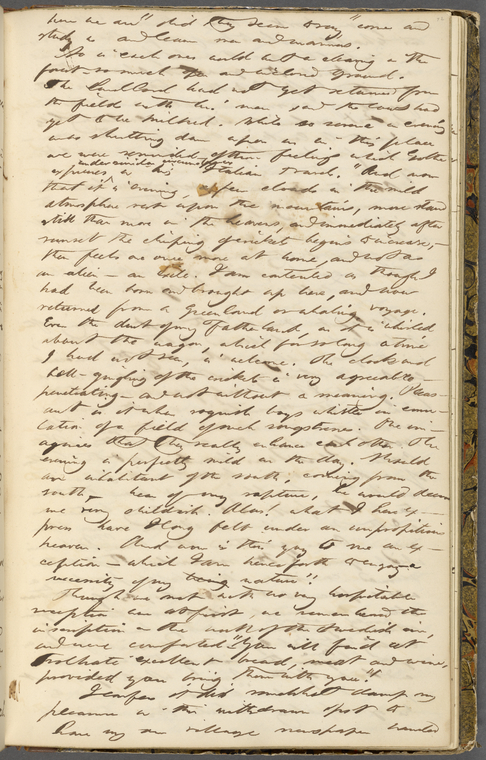 here we are" and they seem to say, "come and
study us and learn men and manners.
So is each one's world but a clearing in the
forest—so much open and inclosed ground.
The landlord had not yet returned from
the field with his men and the cows had
yet to be milked. While so serene an evening
was shutting down upon us in this place
we were reminded of those feelings which Goethe
expresses in his Italian Travels, under similar circumstances "And now
that it is evening, in the mild
atmosphere rest upon the mountains, more stand
still than move in the heavens, and immediately after
sunset the chirping of crickets begins to increase,—
then feels one once more at home, and not as
an alien—an exile. I am contented as though I
had been born and brought up here, and now
returned from a Greenland or whaling voyage.
Even the dust of my Fatherland, as it is whirled
about the wagon, which for so long a time
I had not seen is welcome. The clock and
bell-jingling of the crickets is very agreeable—
penetrating—and not without a meaning. Pleas—
ant is it when roguish boys whistle in emu—
lation of a field of such songstresses. One im—
agines that they really enhance each other. The
evening is perfectly mild as the day. Should
an inhabitant of the south, coming from the
south, hear of my rapture, he would deem
me very childish. Alas! what I here ex—
press have I long felt under an unpropitious
heaven. And now is this joy to me an ex—
ception—which I am henceforth to enjoy—a
necessity of my nature".
Though we met with no very hospitable
reception here at first, we remembered the
inscription on the wall of the Swedish inn,
and were comforted. "You will find at
Trolhate excellent bread, meat and wine,
provided you bring them with you"!
I confess it did somewhat damp my
pleasure in this withdrawn spot to
have my own village newspaper handed